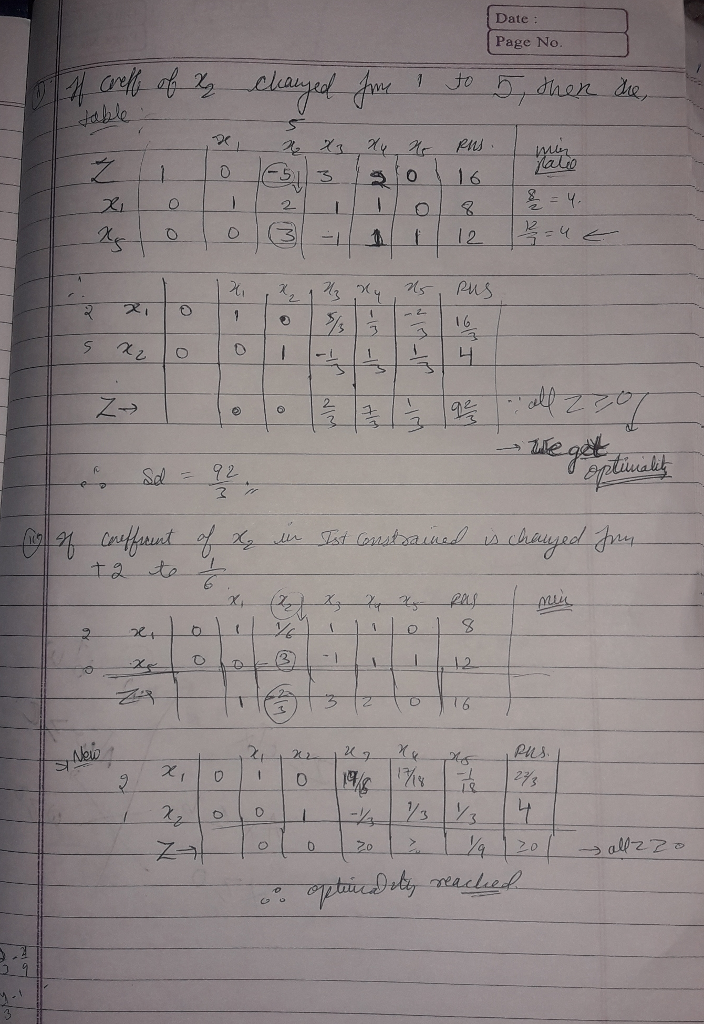 Date :
Page No.
If coeff of x2 changed from 1 to 5, then the,
table :
5
x1 x2 x3 x4 x5 RHS. min Ratio
Z 1 0 -5 3 2 0 16
x1 0 1 2 1 1 0 8 8/2 = 4.
x5 0 0 3 -1 1 1 12 12/3 = 4 ←
∴ x1 x2 x3 x4 x5 RHS
2 x1 0 1 0 5/3 1/3 -2/3 16/3
5 x2 0 0 1 -1/3 1/3 1/3 4
Z→ 0 0 2/3 7/3 1/3 92/3 ∵ all Z ≥ 0
→ we get optimality
∴ Sol = 92/3 "
If coefficient of x2 in Ist constrained is changed from
+2 to 1/6
x1 x2 x3 x4 x5 RHS min
2 x1 0 1 1/6 1 1 0 8
0 x5 0 0 3 -1 1 1 12
Z→ 1 -2/3 3 2 0 16
→ New x1 x2 x3 x4 x5 RHS.
2 x1 0 1 0 19/18 17/18 -1/18 22/3
1 x2 0 0 1 -1/3 1/3 1/3 4
Z→ 0 0 ≥0 ≥ 1/9 ≥0 → all Z ≥ 0
∴ optimality reached.